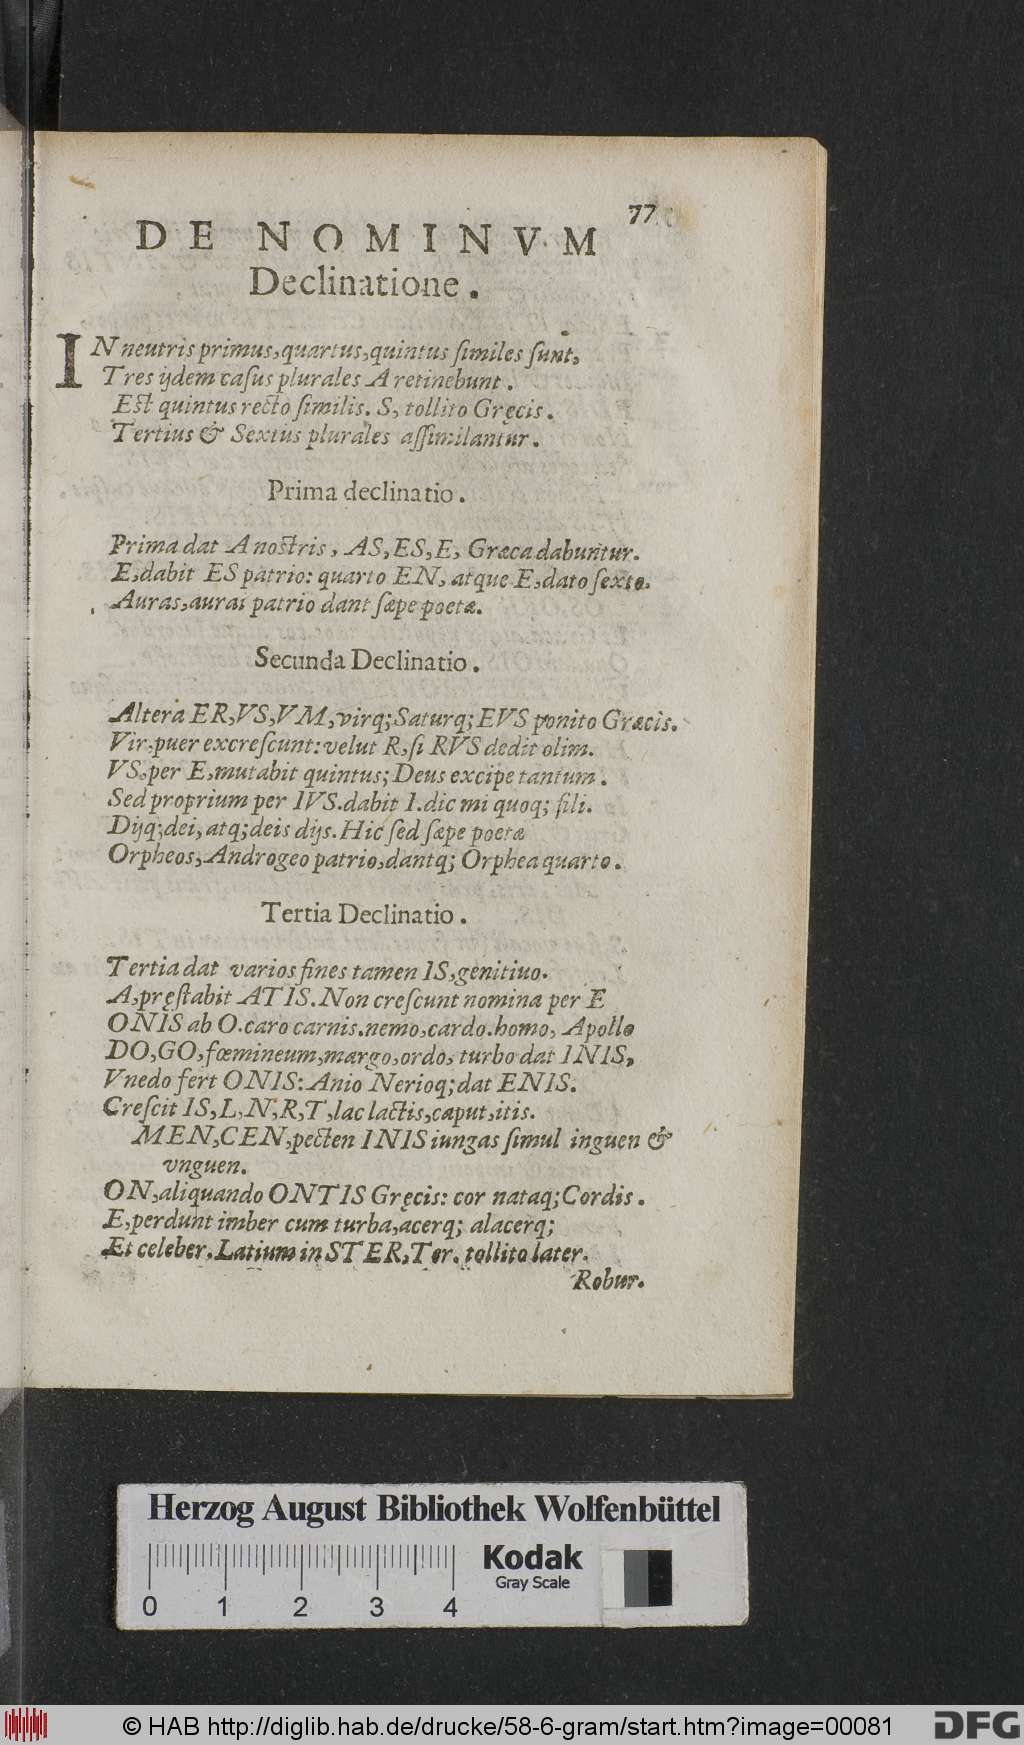 77
DE NOMINVM
Declinatione.
IN neutris primus, quartus, quintus ſimiles ſunt,
Tres ijdem caſus plurales A retinebunt.
Eſt quintus recto ſimilis. S, tollito Gręcis.
Tertius & Sextus plurales aſſimilantur.
Prima declinatio.
Prima dat A noſtris, AS, ES, E, Græca dabuntur.
E, dabit ES patrio: quarto EN, atque E, dato ſexto.
Auras, aurai patrio dant ſæpe poetæ.
Secunda Declinatio.
Altera ER, VS, VM, virq; Saturq; EVS ponito Græcis.
Vir, puer excreſcunt: velut R, ſi RVS dedit olim.
VS, per E, mutabit quintus; Deus excipe tantum.
Sed proprium per IVS. dabit I. dic mi quoq; fili.
Dijq; dei, atq; deis dijs. Hic ſed ſæpe poetæ
Orpheos, Androgeo patrio, dantq; Orphea quarto.
Tertia Declinatio.
Tertia dat varios fines tamen IS, genitiuo.
A, pręſtabit ATIS. Non creſcunt nomina per E
ONIS ab O. caro carnis. nemo, cardo. homo, Apollo
DO, GO, fœmineum, margo, ordo, turbo dat INIS,
Vnedo fert ONIS: Anio Nerioq; dat ENIS.
Creſcit IS, L, N, R, T, lac lactis, caput, itis.
MEN, CEN, pecten INIS iungas ſimul inguen &
vnguen.
ON, aliquando ONTIS Gręcis: cor nataq; Cordis.
E, perdunt imber cum turba, acerq; alacerq;
Et celeber. Latium in STER, Ter. tollito later.
Robur.
Herzog August Bibliothek Wolfenbüttel
Kodak
Gray Scale
0 1 2 3 4
© HAB http://diglib.hab.de/drucke/58-6-gram/start.htm?image=00081
DFG